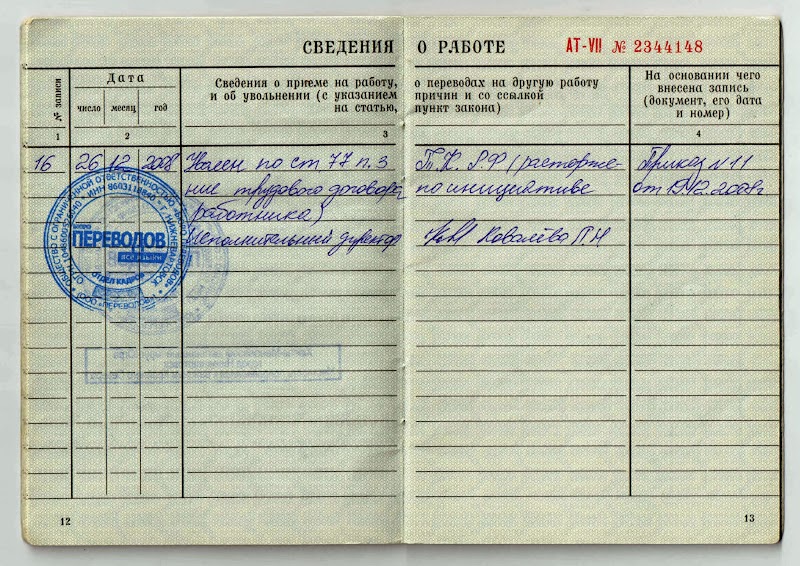 СВЕДЕНИЯ О РАБОТЕ АТ-VII № 2344148
№ записи
Дата
число месяц год
Сведения о приеме на работу, о переводах на другую работу
и об увольнении (с указанием причин и со ссылкой
на статью, пункт закона)
На основании чего
внесена запись
(документ, его дата
и номер)
1 2 3 4
16 26 12 2008 Уволен по ст 77 п. 3 Т.К. Р.Ф (расторже- Приказ N 11
ние трудового договора по инициативе от 2008г
работника)
Исполнительный директор Ковалёва Л.Н
БЮРО
ПЕРЕВОДОВ
ВСЕ ЯЗЫКИ
ОТДЕЛ КАДРОВ
12 13